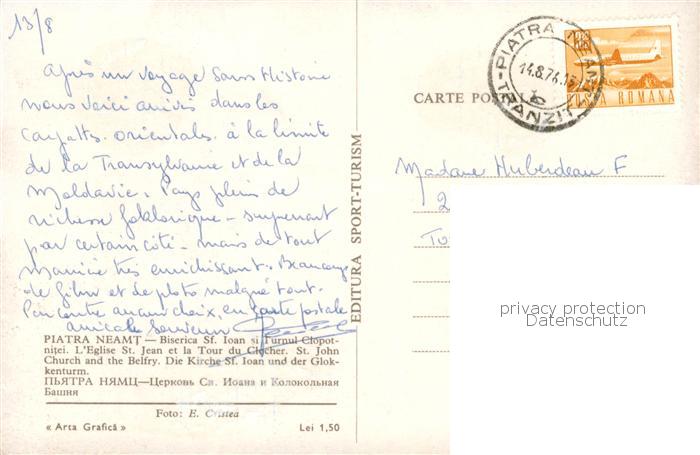 13/8
Après un voyage sans Histoire
nous voici arrivés dans les
Carpattes orientales à la limite
de la Transylvanie et de la
Moldavie. Pays plein de
richesse folklorique - surprenant
par certain côté - mais de tout
manière très enrichissant. Beaucoup
de film et de photo malgré tout.
Par contre aucun choix, en carte postale
amical souvenir
PIATRA NEAMȚ — Biserica Sf. Ioan și Turnul Clopot-
niței. L'Eglise St. Jean et la Tour du Clocher. St. John
Church and the Belfry. Die Kirche Sf. Ioan und der Glok-
kenturm.
ПЬЯТРА НЯМЦ—Церковь Св. Иоана и Колокольная
Башня
Foto: E. Cristea
« Arta Grafică »
Lei 1,50
EDITURA SPORT-TURISM
CARTE POSTALĂ
PIATRA NEAMȚ
14.8.74.15
TRANZIT
POȘTA ROMANA
Madame Huberdeau F
2
privacy protection
Datenschutz